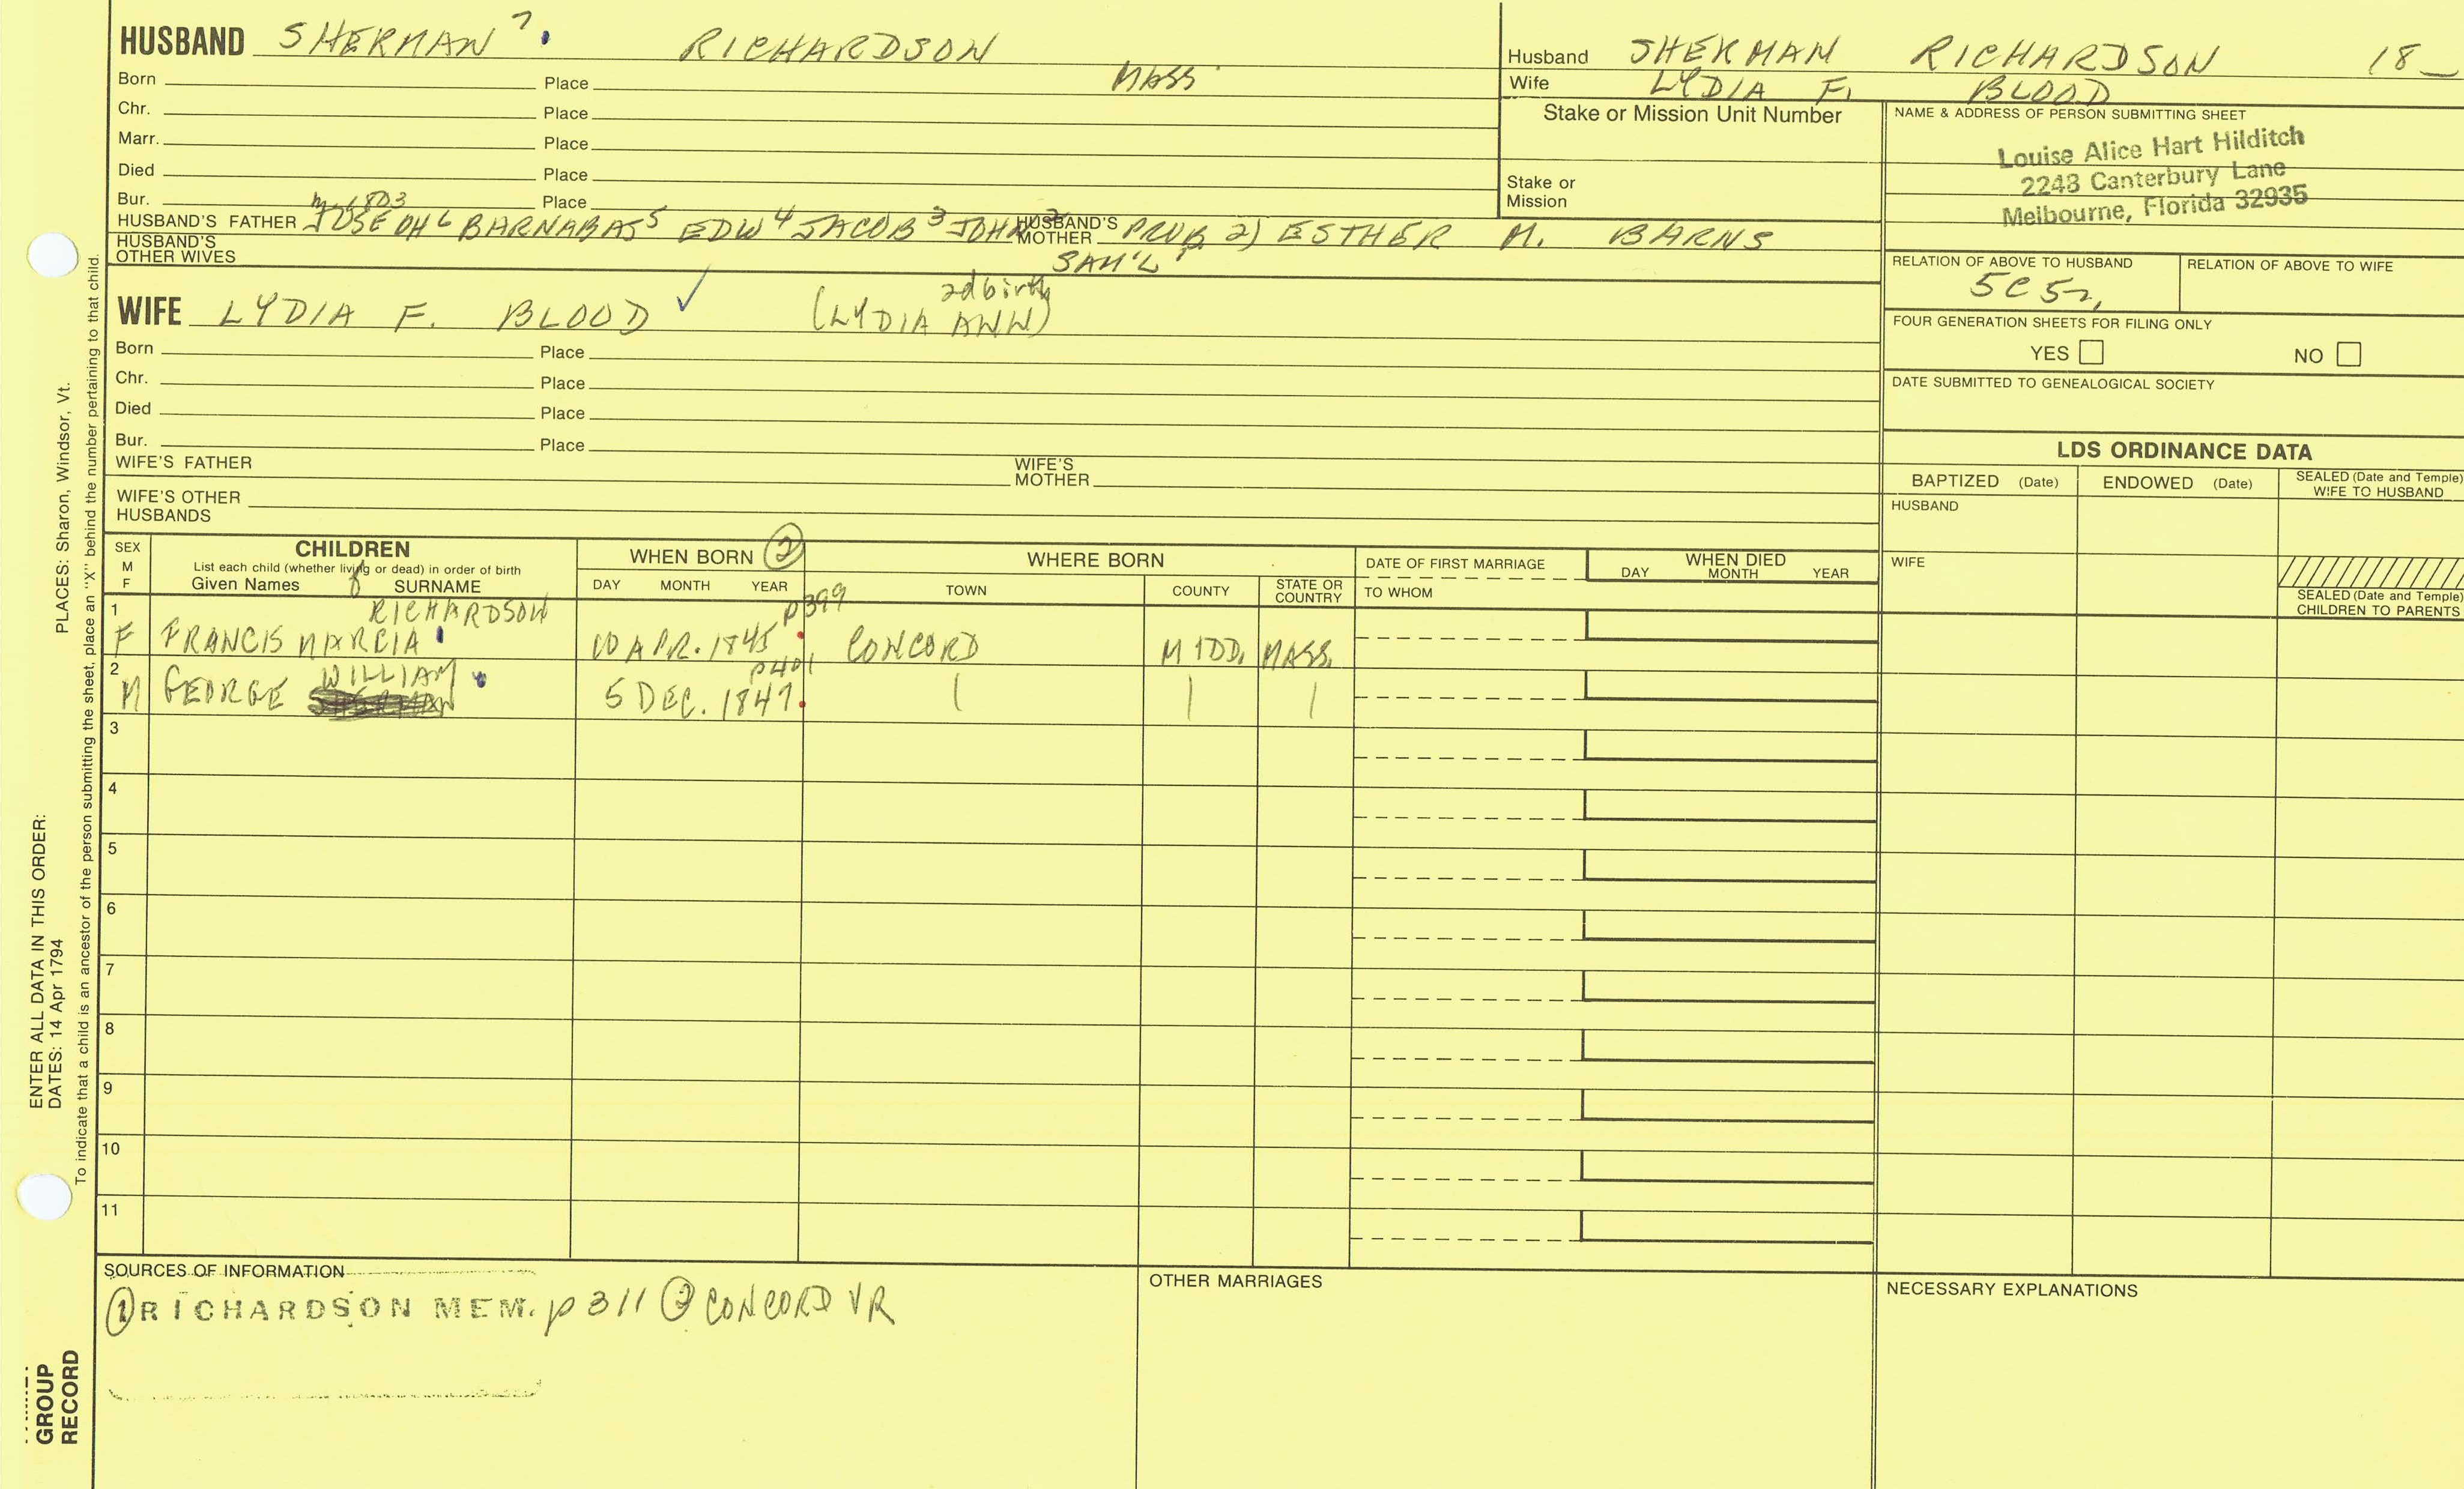 HUSBAND SHERMAN 7 RICHARDSON
Born Place MASS
Chr. Place
Marr. Place
Died Place
Bur. Place
m 1803
HUSBAND'S FATHER JOSEPH 6 BARNABAS 5 EDW 4 JACOB 3 JOHN 2 HUSBAND'S MOTHER PROB 2) ESTHER M. BARNS
SAM'L 1
HUSBAND'S OTHER WIVES
2d birth
WIFE LYDIA F. BLOOD ✓ (LYDIA ANN)
Born Place
Chr. Place
Died Place
Bur. Place
WIFE'S FATHER WIFE'S MOTHER
WIFE'S OTHER HUSBANDS
Husband SHERMAN RICHARDSON 18_
Wife LYDIA F. BLOOD
Stake or Mission Unit Number
Stake or Mission
NAME & ADDRESS OF PERSON SUBMITTING SHEET
Louise Alice Hart Hilditch
2248 Canterbury Lane
Melbourne, Florida 32935
RELATION OF ABOVE TO HUSBAND RELATION OF ABOVE TO WIFE
5C5r,
FOUR GENERATION SHEETS FOR FILING ONLY
YES NO
DATE SUBMITTED TO GENEALOGICAL SOCIETY
LDS ORDINANCE DATA
BAPTIZED (Date) ENDOWED (Date) SEALED (Date and Temple) WIFE TO HUSBAND
HUSBAND
WIFE
SEALED (Date and Temple) CHILDREN TO PARENTS
SEX M F
CHILDREN
List each child (whether living or dead) in order of birth
Given Names SURNAME
WHEN BORN 2
DAY MONTH YEAR
WHERE BORN
TOWN COUNTY STATE OR COUNTRY
DATE OF FIRST MARRIAGE
TO WHOM
WHEN DIED
DAY MONTH YEAR
1 RICHARDSON p399
F FRANCIS MARCIA 10 APR. 1845 CONCORD MIDD. MASS.
2 WILLIAM p401
M GEORGE 5 DEC. 1847
3
4
5
6
7
8
9
10
11
SOURCES OF INFORMATION
1 RICHARDSON MEM. p 311 2 CONCORD VR
OTHER MARRIAGES
NECESSARY EXPLANATIONS
PLACES: Sharon, Windsor, Vt.
ENTER ALL DATA IN THIS ORDER:
DATES: 14 Apr 1794
To indicate that a child is an ancestor of the person submitting the sheet, place an "X" behind the number pertaining to that child.
GROUP
RECORD